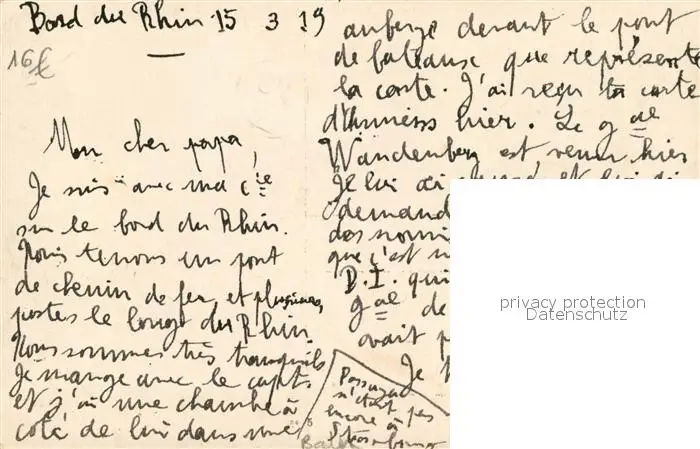 Bord du Rhin 15 3 19
16€
Mon cher papa,
Je suis avec ma Cie
sur le bord du Rhin.
Nous tenons un pont
de chemin de fer, et plusieurs
postes le long du Rhin.
Nous sommes très tranquils
Je mange avec le capt.
et j'ai une chambre à
coté de lui dans une
auberge devant le pont
de bateaux que représente
la carte. J'ai reçu ta carte
d'Amiens hier. Le gal
Wandenberg est venu hier
Je lui ai et lui ai
demand
des nouv
que c'est
D.I. qui
gal de
avait
Je
n'était pas
encore à
Strasbourg
privacy protection
Datenschutz